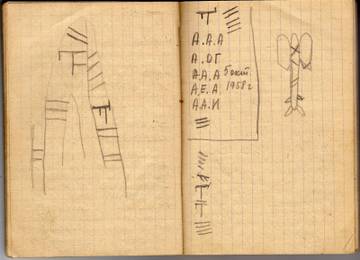 А.А.А
А.ОГ
А.А.А 5 окт.
А.Е.А 1958 г
А.А.И